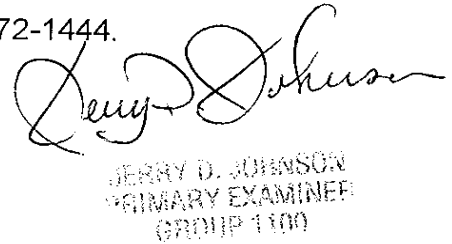 72-1444.
Jerry D Johnson
JERRY D. JOHNSON
PRIMARY EXAMINER
GROUP 1100